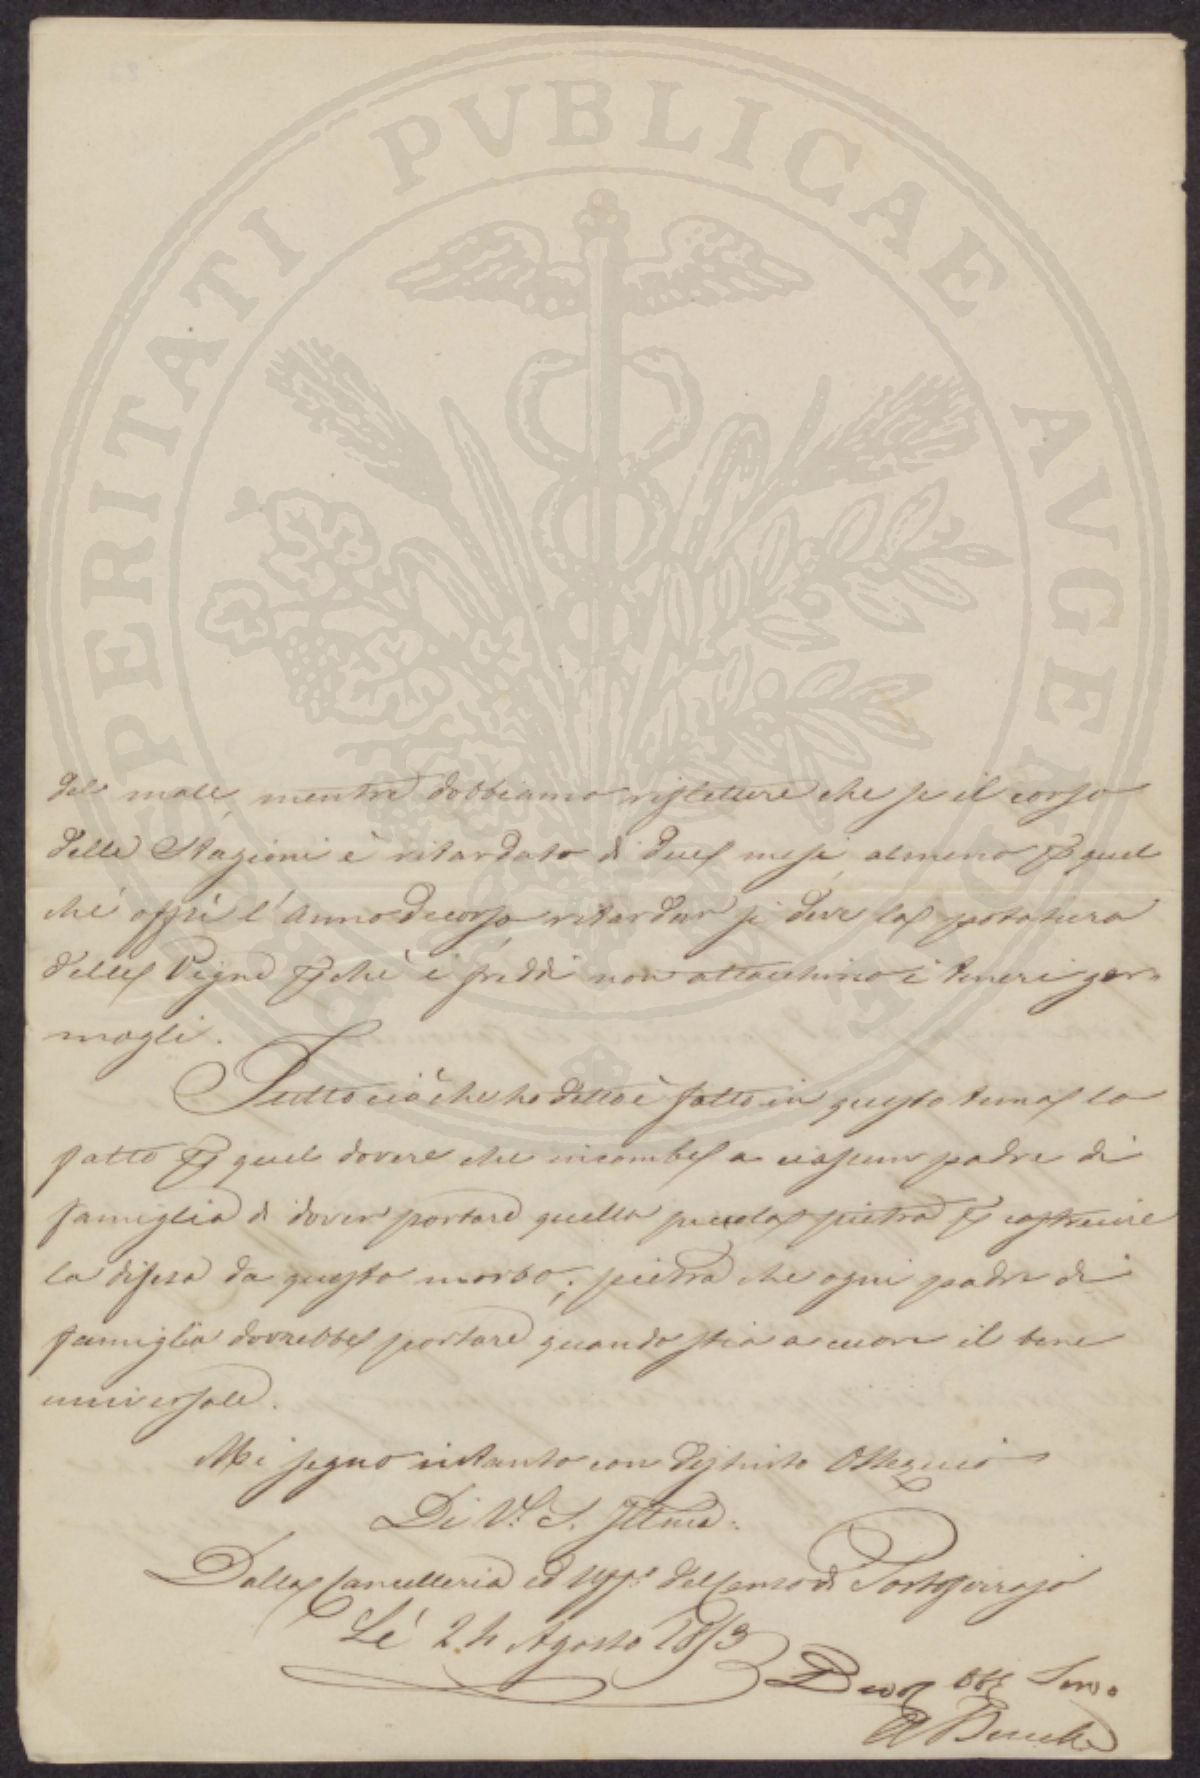 PROSPERITATI PVBLICAE AVGENDAE
del male, mentre dobbiamo riflettere che se il corso
delle Stagioni è ritardato di due mesi, almeno p quel
che offrì l'Anno decorso, ritardar si deve la potatura
delle Vigne pchè i freddi non attacchino i teneri ger=
mogli.
Tutto ciò che ho detto è fatto in questo tema lo
fatto p quel dovere che incombe a ciascun padre di
famiglia di dover portare quella piccola pietra p costruire
la difesa da questo morbo; pietra che ogni padre di
famiglia dovrebbe portare quando stia a cuore il bene
universale.
Mi segno intanto con distinto Ossequio
Di V. S. Illma.
Dalla Cancelleria ed Uff. del Censo di Portoferrajo
Lé 24 Agosto 1853
Devo Obb Servo